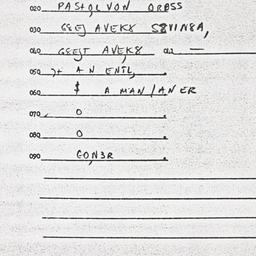 020 PASTOL VON ORBSS
030 GEEJ AVEKY SEVINEA,
040 GEEJT AVEKY a2 —
050 >+ AN ENTL,
060 $ A MAN/AN ER
070 0
080 0
090 GON3R